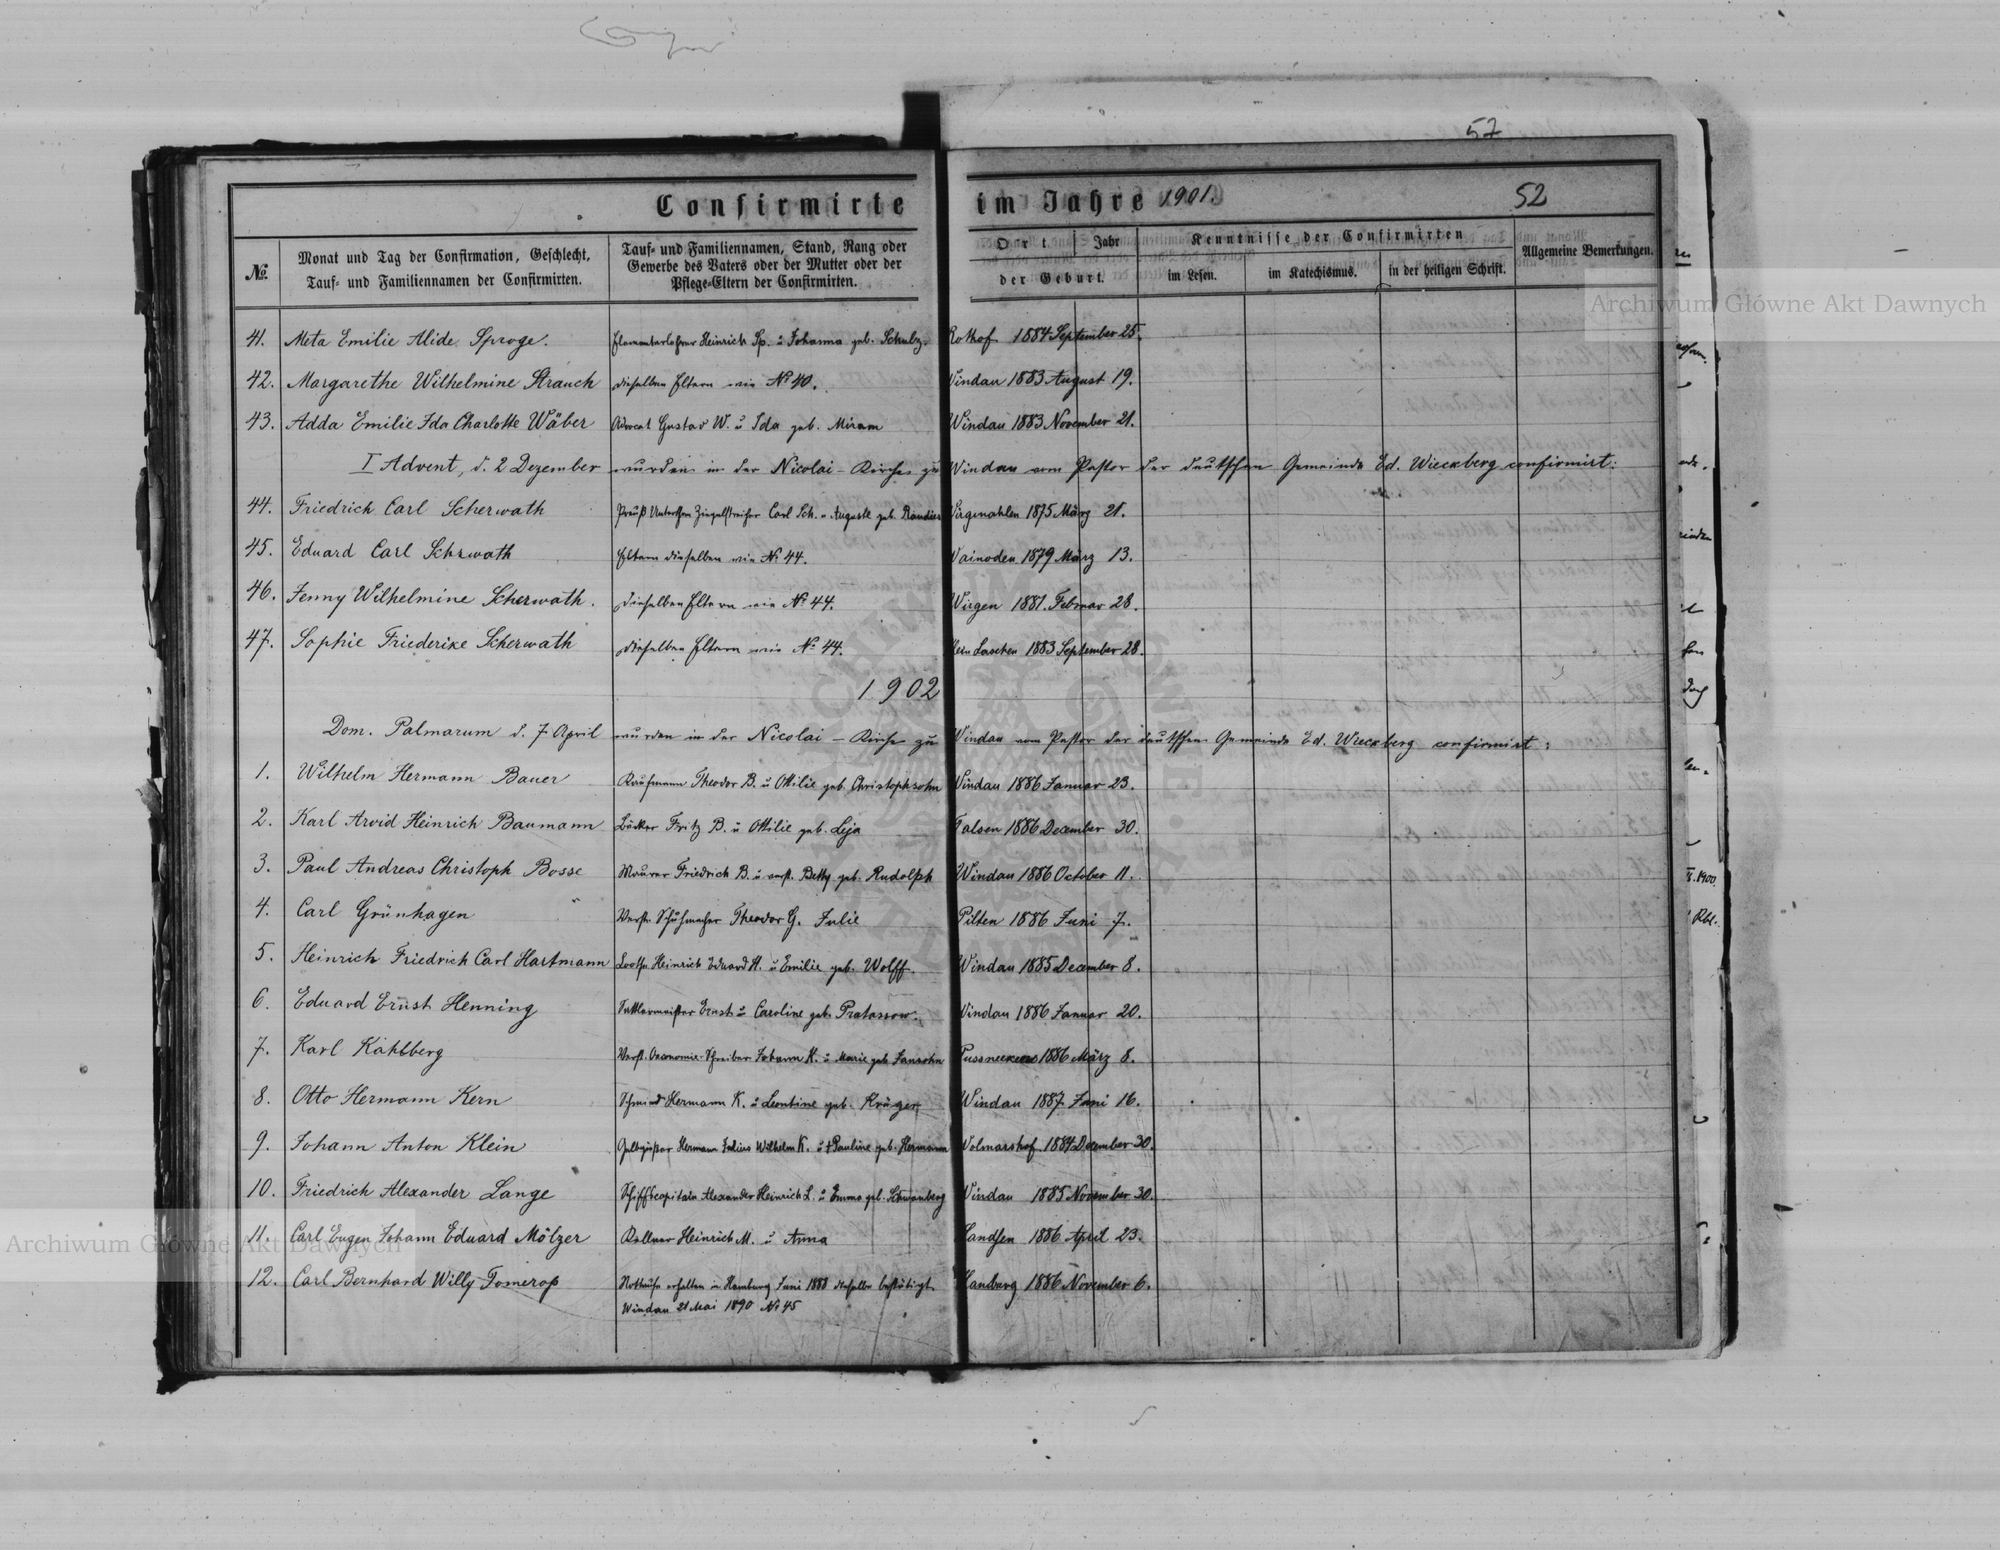 57
Confirmirte im Jahre 1901. 52
№ Monat und Tag der Confirmation, Geschlecht, Tauf- und Familiennamen der Confirmirten.
Tauf- und Familiennamen, Stand, Rang oder Gewerbe des Vaters oder der Mutter oder der Pflege-Eltern der Confirmirten.
Ort Jahr der Geburt.
Kenntnisse der Confirmirten
im Lesen. im Katechismus. in der heiligen Schrift.
Allgemeine Bemerkungen.
41. Meta Emilie Alide Sproge. Elementarlehrer Heinrich Sp. u Johanna geb. Schulz. Rothof 1884 September 25.
42. Margarethe Wilhelmine Strauch dieselben Eltern wie № 40. Windau 1883 August 19.
43. Adda Emilie Ida Charlotte Wäber Advocat Gustav W. u Ida geb. Miram Windau 1883 November 21.
I Advent, d. 2 Dezember wurden in der Nicolai-Kirche zu Windau vom Pastor der deutschen Gemeinde Ed. Wieckberg confirmirt:
44. Friedrich Carl Scherwath Preuß Unterthan Ziegelstreicher Carl Sch. u Auguste geb. Rawdies Wirgenahlen 1875 März 21.
45. Eduard Carl Scherwath Eltern dieselben wie № 44. Wainoden 1879 März 13.
46. Jenny Wilhelmine Scherwath. dieselben Eltern wie № 44. Wirgen 1881. Februar 28.
47. Sophie Friederike Scherwath dieselben Eltern wie № 44. Klein Laschen 1883 September 28.
1902
Dom. Palmarum d. 7 April wurden in der Nicolai-Kirche zu Windau vom Pastor der deutschen Gemeinde Ed. Wieckberg confirmirt:
1. Wilhelm Hermann Bauer Kaufmann Theodor B. u Ottilie geb. Christophsohn Windau 1886 Januar 23.
2. Karl Arvid Heinrich Baumann Bäcker Fritz B. u Ottilie geb. Leja Talsen 1886 December 30.
3. Paul Andreas Christoph Bosse Maurer Friedrich B. u verst. Betty geb. Rudolph Windau 1886 October 11.
4. Carl Grünhagen Verst. Schuhmacher Theodor G. Julie Pilten 1886 Juni 7.
5. Heinrich Friedrich Carl Hartmann Lootse Heinrich Eduard H. u Emilie geb. Wolff. Windau 1885 December 8.
6. Eduard Ernst Henning Sattlermeister Ernst u Caroline geb. Pratassow. Windau 1886 Januar 20.
7. Karl Kahlberg Verst. Oeconomie-Schreiber Johann K. u Marie geb. Jansohn 1886 März 8.
8. Otto Hermann Kern Schmied Hermann K. u Leontine geb. Krüger Windau 1887 Juni 16.
9. Johann Anton Klein Gelbgießer Hermann Julius Wilhelm K. u † Pauline geb. Hermann Wolmarshof 1884 December 30.
10. Friedrich Alexander Lange Schiffscapitain Alexander Heinrich L. u Emma geb. Schwanberg Windau 1885 November 30.
11. Carl Eugen Johann Eduard Mölzer Kellner Heinrich M. u Anna Kandsen 1886 April 23.
12. Carl Bernhard Willy Tomerop Nothtaufe erhalten in Hamburg Juni 1888 dieselbe bestätigt Hamburg 1886 November 6.
Windau 21 Mai 1890 № 45
Archiwum Główne Akt Dawnych
Archiwum Główne Akt Dawnych